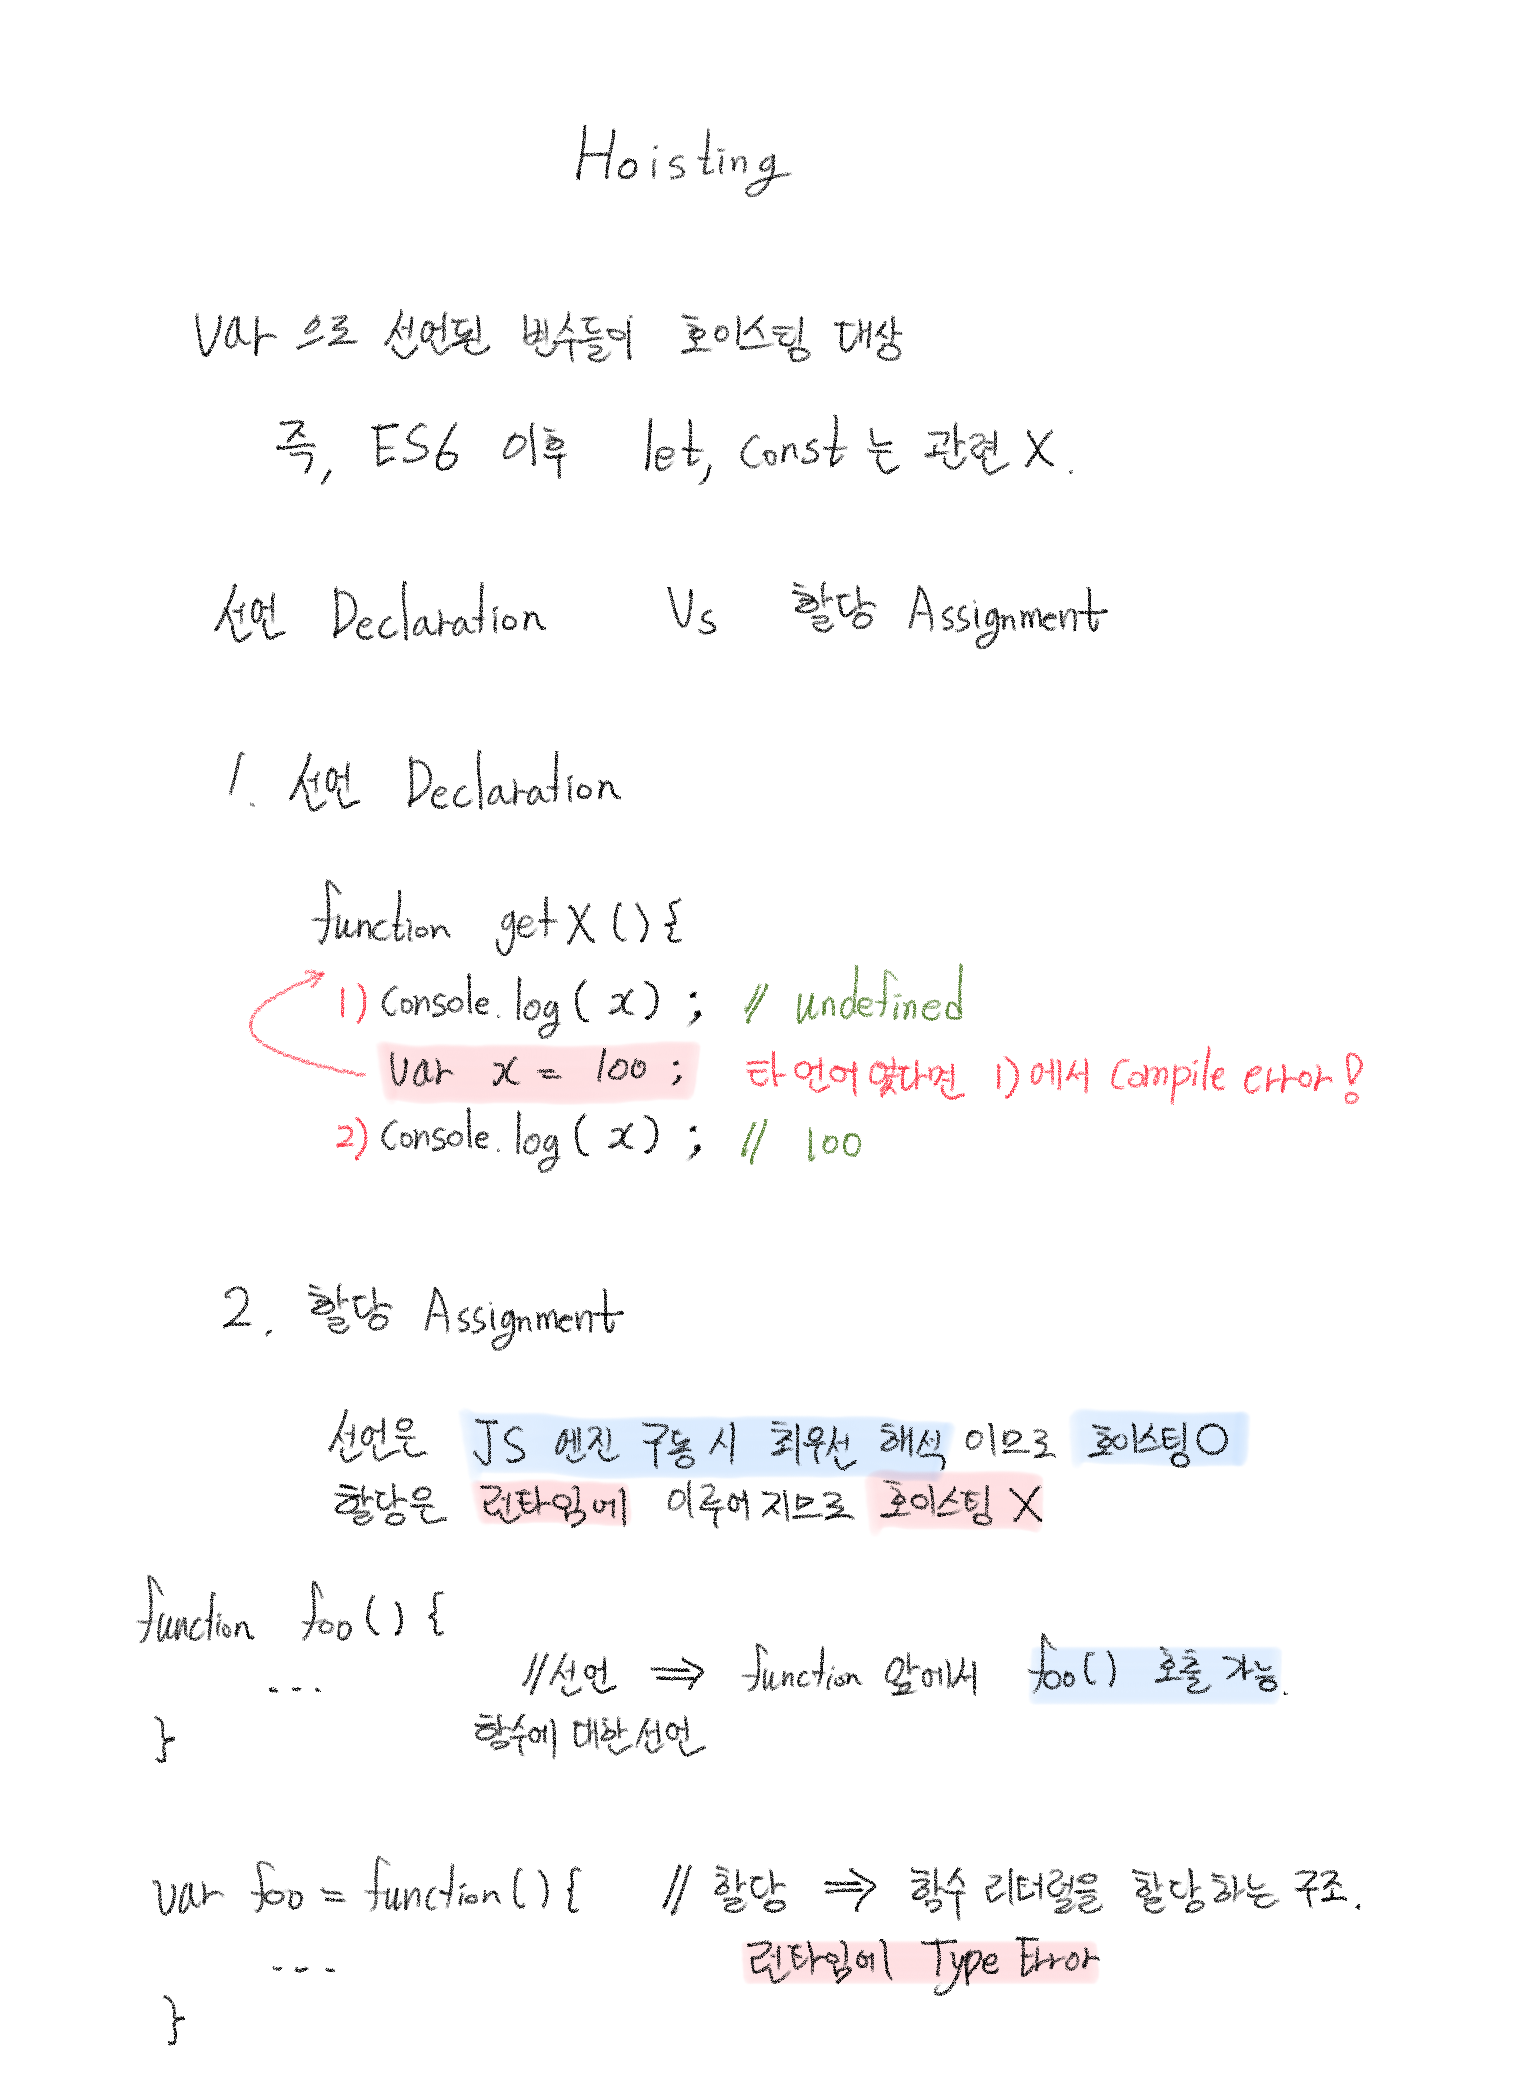 Hoisting
var 으로 선언된 변수들이 호이스팅 대상
즉, ES6 이후 let, const는 관련 X.
선언 Declaration Vs 할당 Assignment
1. 선언 Declaration
function getX(){
1) console.log(x); // undefined
var x = 100; 타 언어였다면 1)에서 compile error!
2) console.log(x); // 100
2. 할당 Assignment
선언은 JS 엔진 구동 시 최우선 해석 이므로 호이스팅 O
할당은 런타임에 이루어지므로 호이스팅 X
function foo() {
... //선언 ⇒ function 앞에서 foo() 호출 가능.
} 함수에 대한 선언
var foo = function(){ // 할당 ⇒ 함수 리터럴을 할당하는 구조.
--- 런타임에 Type Error
}